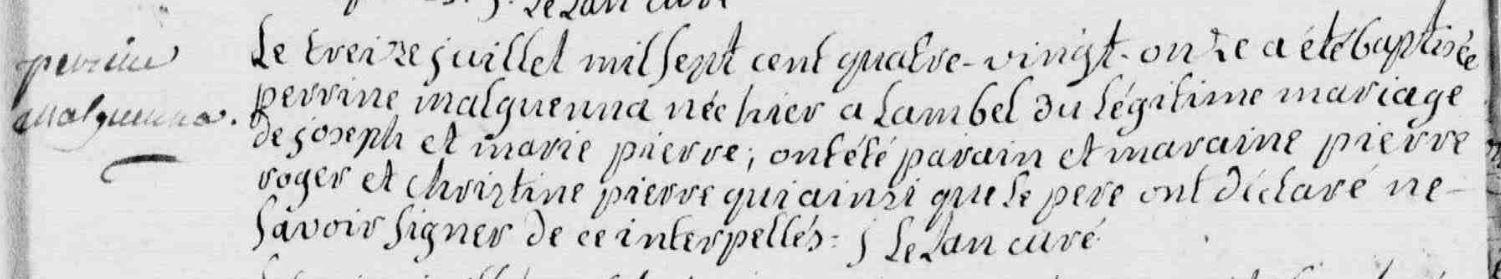 Le Lan curé
perrine
malguenna.
Le treize juillet mil sept cent quatre-vingt-onze a été baptisée
perrine malguenna née hier a Lambel du légitime mariage
de joseph et marie pierre; ont été parain et maraine pierre
roger et christine pierre qui ainsi que le pere ont déclaré ne-
savoir signer de ce interpellés: J Le Lan curé